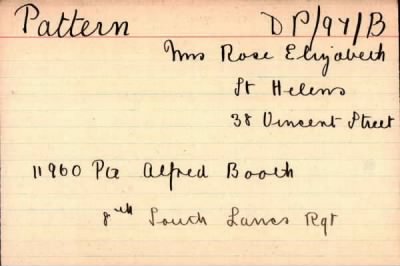 Pattern DP/94/B
Mrs Rose Elizabeth
St Helens
38 Vincent Street
11960 Pte Alfred Booth
8th South Lancs Rgt